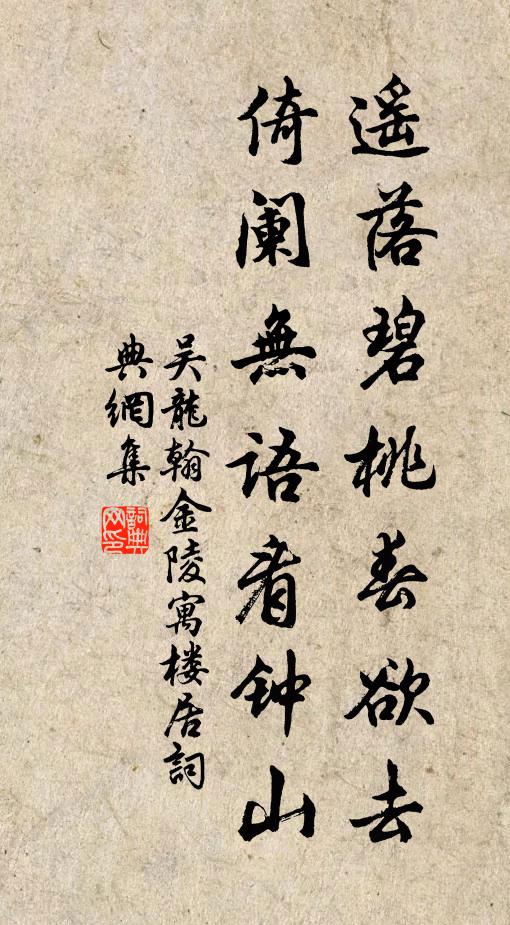 遥落碧桃春欲去
倚阑無语看钟山
吴龍翰金陵寓楼居詞
典網集
詞典
网印